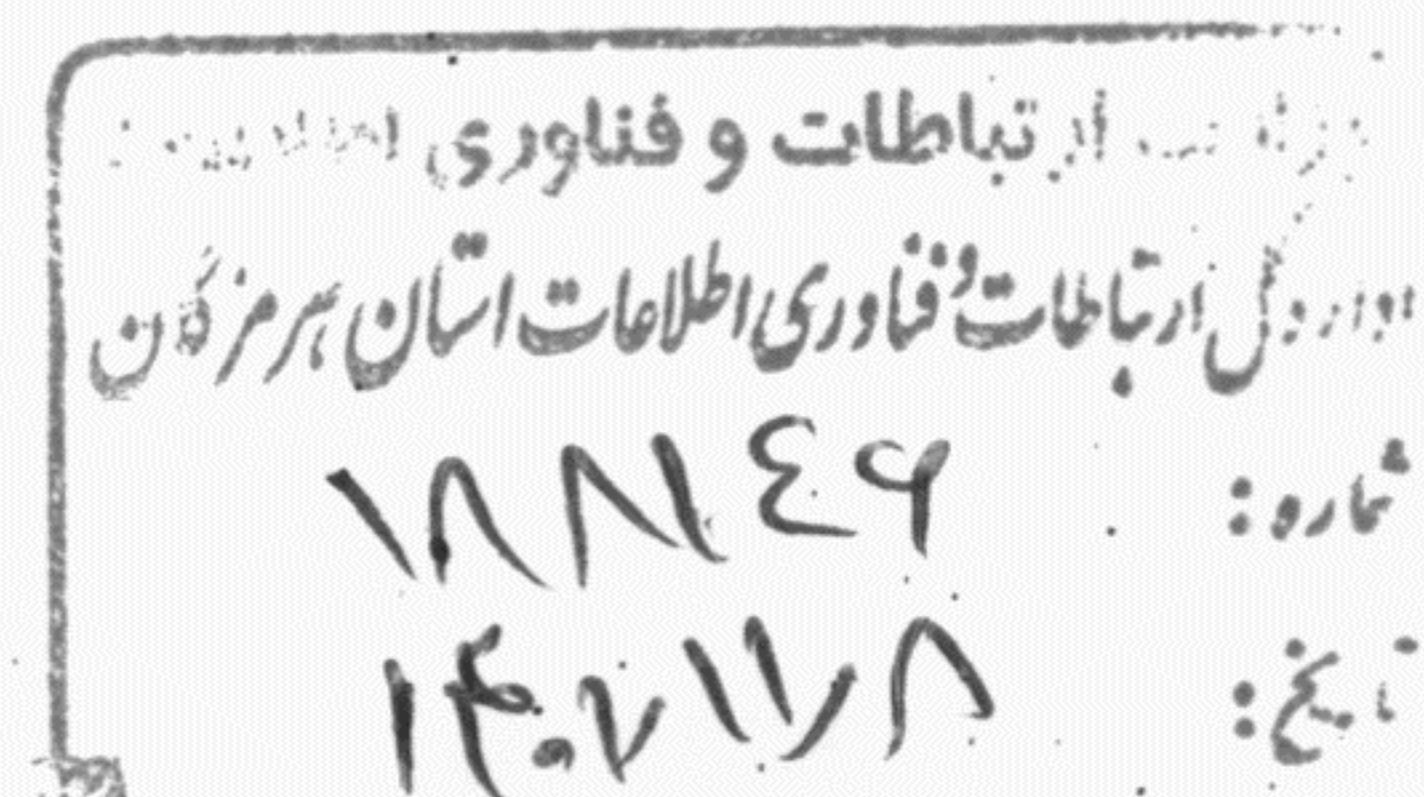 ارتباطات و فناوری
اداره کل ارتباطات و فناوری اطلاعات استان هرمزگان
شماره : ۱۸۸۱٤۹
تاریخ :